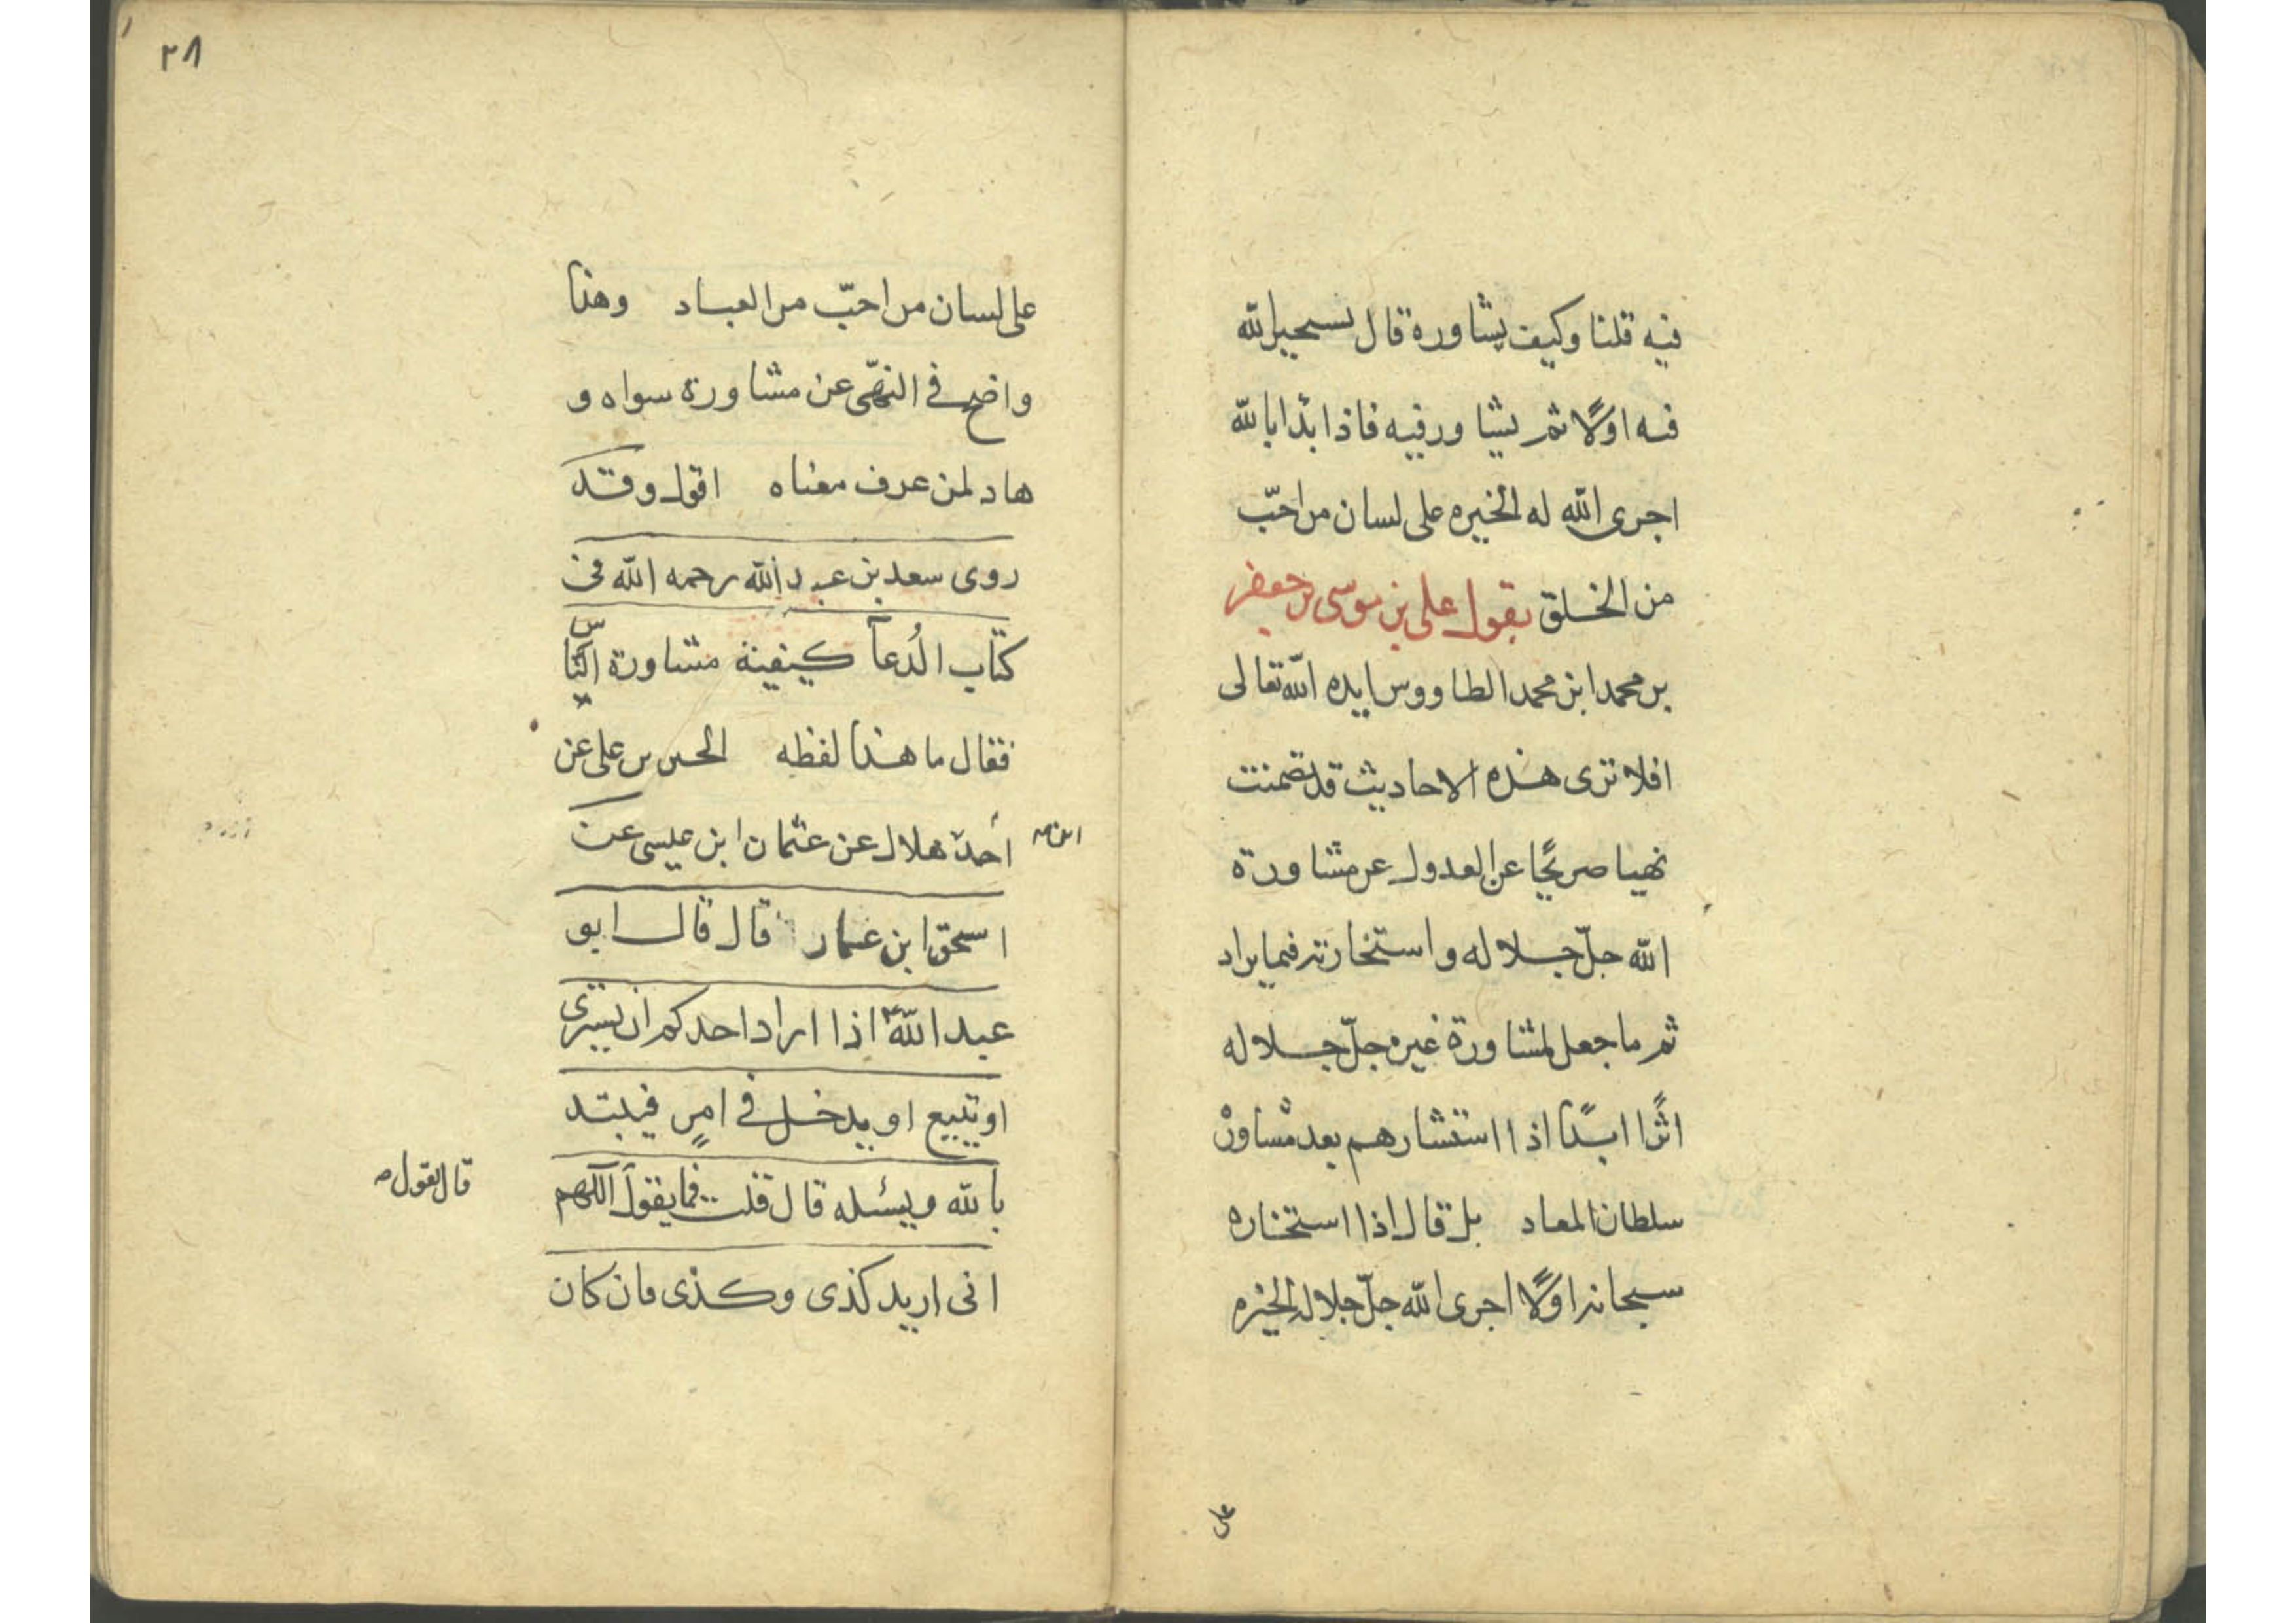 فيه قلنا وكيف يشاوره قال يستخير الله
فيه اولًا ثم يشاور فيه فاذا بدا بالله
اجرى الله له الخيره على لسان من احبّ
من الخلق يقول على بن موسى بن جعفر
بن محمد ابن محمد الطاووس ايده الله تعالى
افلا ترى هذه الاحاديث قد تضمنت
نهيا صريحًا عن العدول عن مشاورة
الله جلّ جلاله واستخارته فيما يراد
ثم ما جعل لمشاورة غيره جلّ جلاله
اثرًا ابدًا اذا استشارهم بعد مشاورة
سلطان المعاد بل قال اذا استخاره
سبحانه اولًا اجرى الله جلّ جلاله الخيره
على
٢٨
على لسان من احبّ من العباد وهذا
واضح في النهي عن مشاورة سواه و
هاد لمن عرف معناه اقول وقد
روى سعد بن عبد الله رحمه الله في
كتاب الدُعآ كيفية مشاورة الناس
فقال ما هذا لفظه الحسن بن على عن
أحمد هلال عن عثمان ابن عيسى عن
ابن صح
اسحق ابن عمار قال قال ابو
عبد الله ع اذا اراد احدكم ان يشترى
او يبيع او يدخل في امرٍ فيبتد
بالله ويسئله قال قلت فما يقول اللهم
قال يقول صح
انى اريد كذى وكذى فان كان